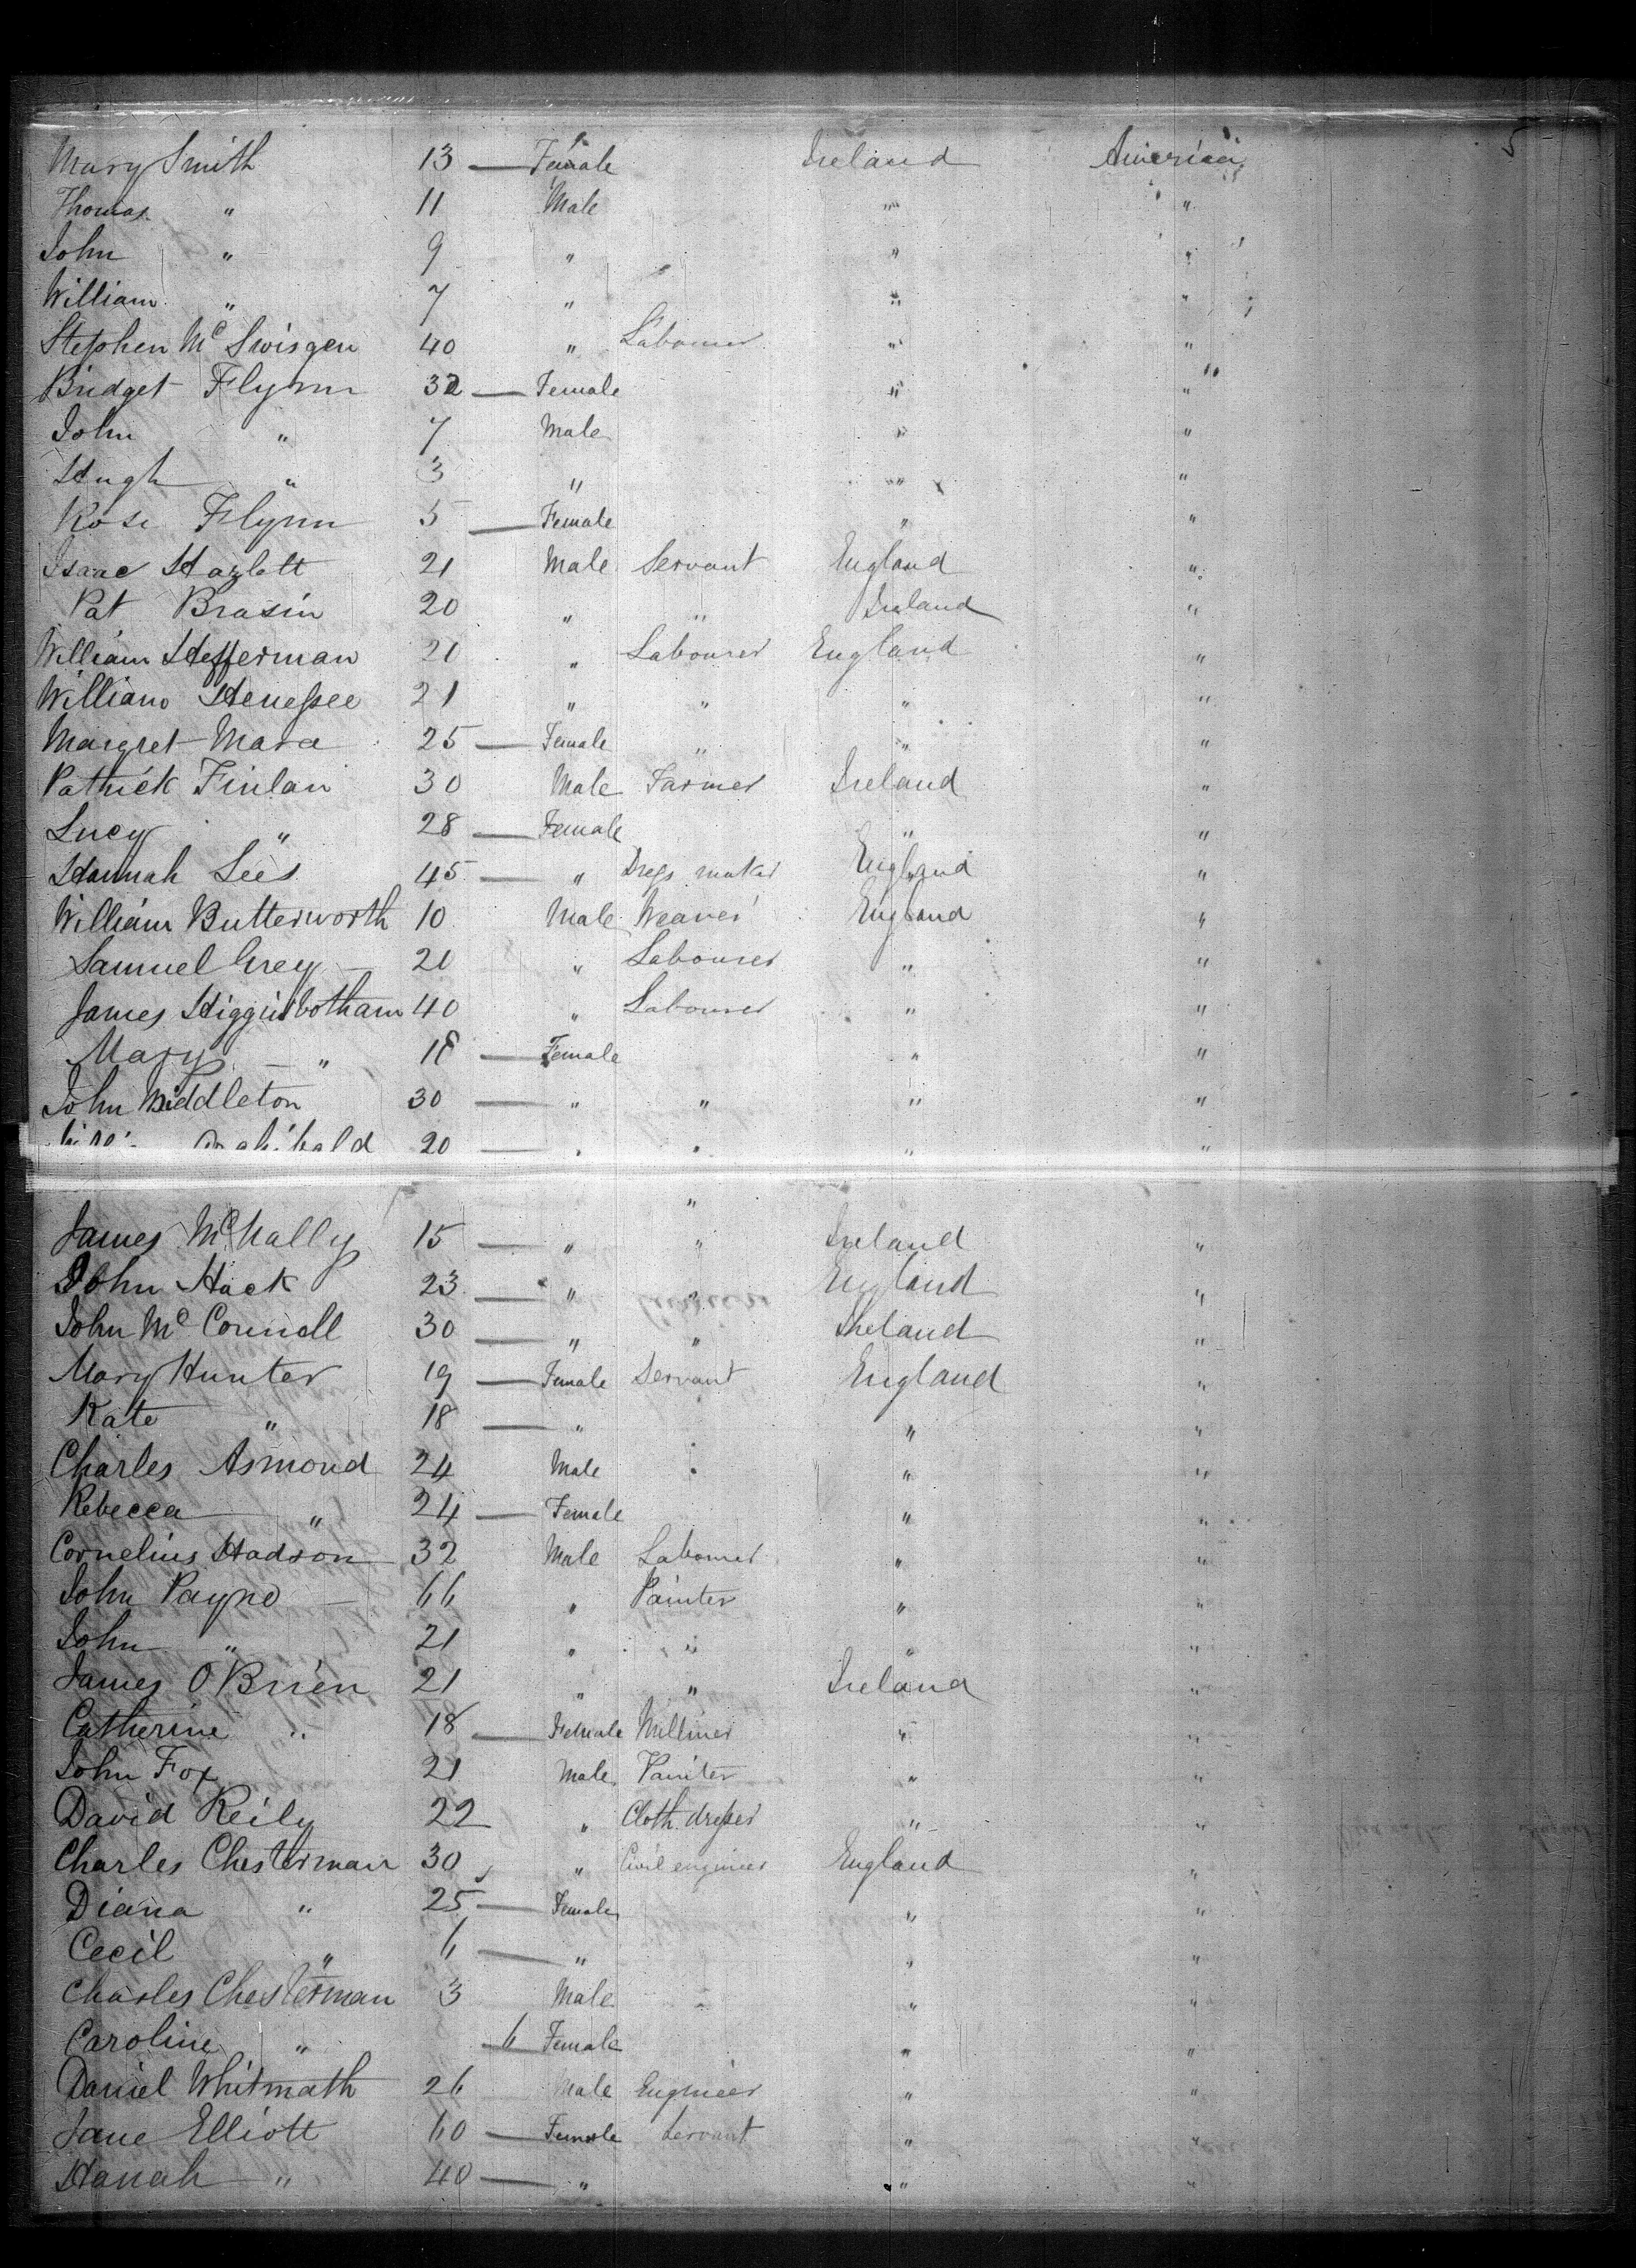 5
Mary Smith 13 — Female Ireland America
Thomas " 11 Male " "
John " 9 " " "
William " 7 " " "
Stephen Mc Swisgen 40 " Labourer " "
Bridget Flynn 32 — Female " "
John " 7 Male " "
Hugh " 3 " " "
Rose Flynn 5 — Female " "
Isaac Hazlett 21 Male Servant England "
Pat Brasin 20 " " Ireland "
William Hefferman 20 " Labourer England "
William Henessee 21 " " " "
Margret Mara 25 — Female " " "
Patrick Finlan 30 Male Farmer Ireland "
Lucy " 28 — Female " "
Hannah Lees 45 — " Dress maker England "
William Butterworth 10 Male Weaver England "
Samuel Grey — 20 " Labourer " "
James Higginbotham 40 " Labourer " "
Mary — " 18 — Female " "
John Middleton 30 — " " " "
Archibald 20 — " " " "
"
James McNally 15 — " " Ireland "
John Hack 23 — " " England "
John Mc Connell 30 — " " Ireland "
Mary Hunter 19 — Female Servant England "
Kate " 18 — " " "
Charles Asmond 24 Male " " "
Rebecca " 24 — Female " "
Cornelius Hadson 32 Male Labourer " "
John Payne — 66 " Painter " "
John " 21 " " " "
James O'Brien 21 " " Ireland "
Catherine " 18 — Female Milliner " "
John Fox 21 Male Painter " "
David Reily 22 " Cloth dresser " "
Charles Chesterman 30 " Civil engineer England "
Diana " 25 — Female " "
Cecil " 6 — " " "
Charles Chesterman 3 Male " "
Caroline " 6 Female " "
Daniel Whitmath 26 Male Engineer " "
Jane Elliott 60 — Female Servant " "
Hanah " 40 — " " "